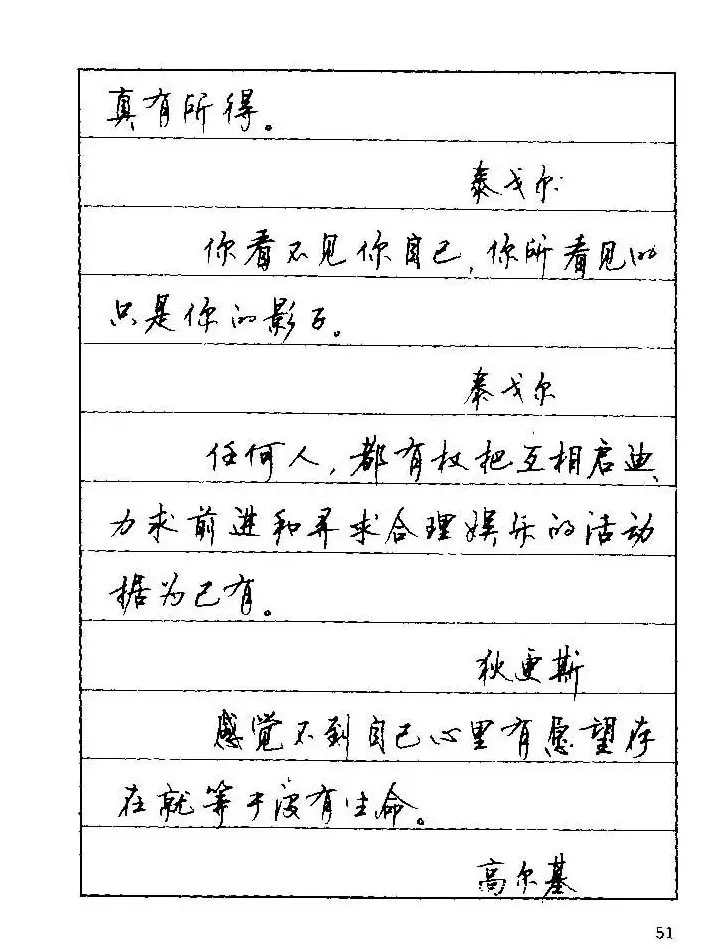 真有所得。
泰戈尔
你看不见你自己,你所看见的
只是你的影子。
泰戈尔
任何人,都有权把互相启迪、
力求前进和寻求合理娱乐的活动
据为己有。
狄更斯
感觉不到自己心里有愿望存
在就等于没有生命。
高尔基
51